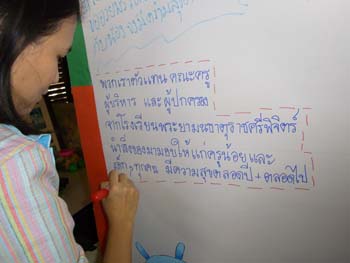 พวกเราตัวแทน คณะครู
ผู้บริหาร และ ผู้ปกครอง
จากโรงเรียนพระยามนธาตุราชศรีพิจิตร์
นำสิ่งของมามอบให้แก่ครูน้อยและ
เด็กๆทุกคน มีความสุขตลอดปี + ตลอดไป